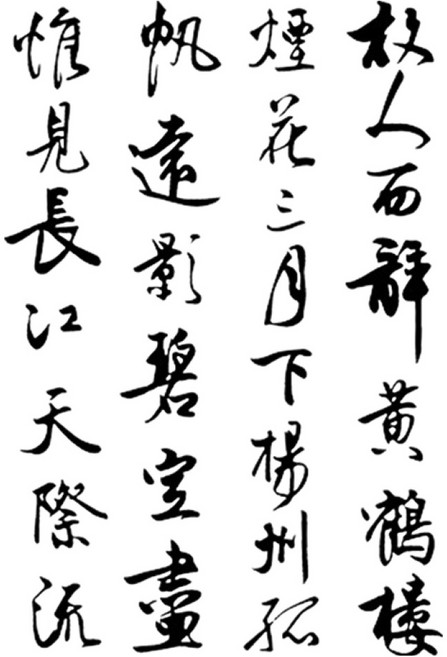 故人西辭黃鶴樓
煙花三月下楊州孤
帆遠影碧空盡
惟見長江天際流